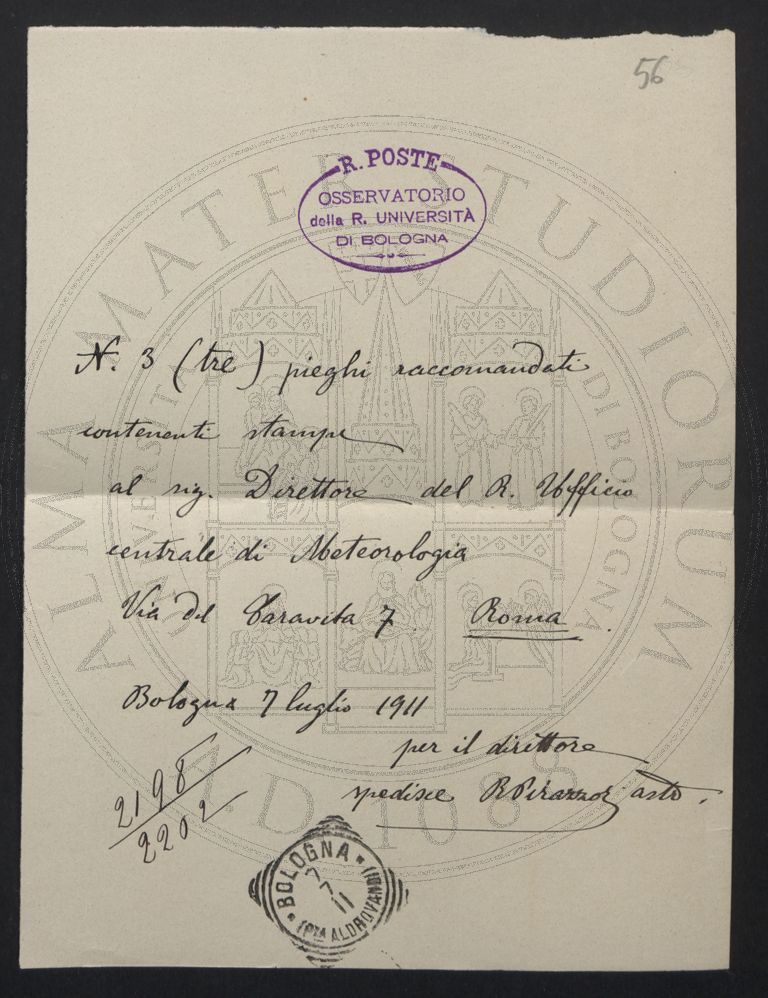 56
R. POSTE
OSSERVATORIO
della R. UNIVERSITÀ
DI BOLOGNA
ALMA MATER STUDIORUM
UNIVERSITÀ DI BOLOGNA
N. 3 (tre) pieghi raccomandati
contenenti stampe
al sig. Direttore del R. Ufficio
centrale di Meteorologia
Via del Caravita 7. Roma.
Bologna 7 luglio 1911
per il direttore
spedisce R Pirazzoli astr.
2198
2202
A.D. 1088
BOLOGNA
7-7
11
(PZA ALDROVANDI)